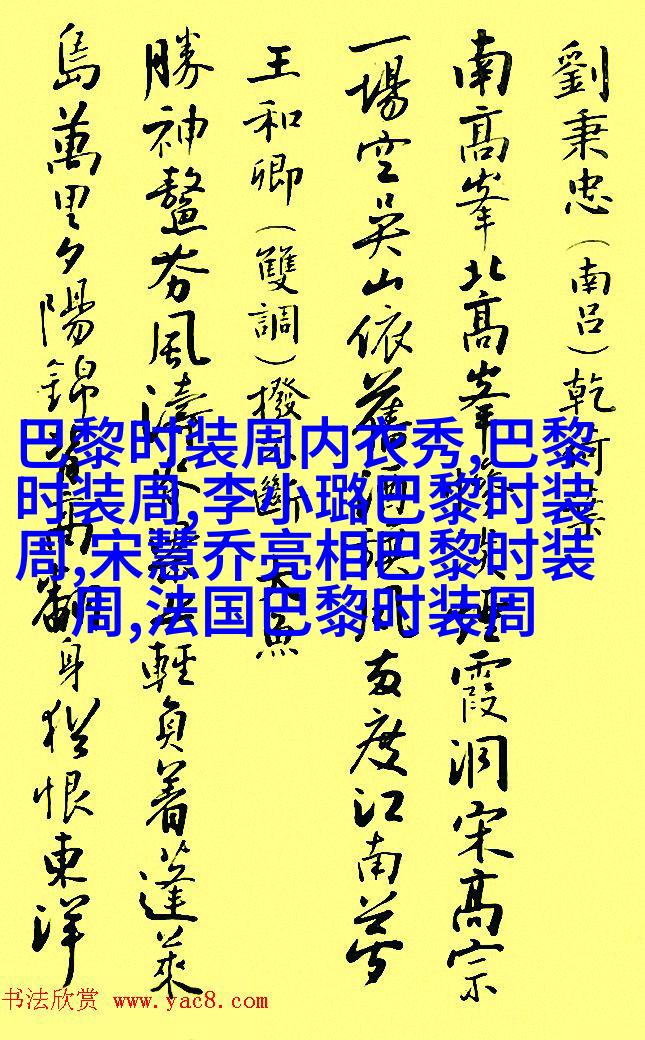 劉秉忠(南呂)乾荷葉
南高峯北高峯慘淡煙霞洞宋高宗
一場空吳山依舊酒旗風兩度江南夢
王和卿(雙調)撥不斷 大魚
勝神鰲夯風濤脊梁上輕負着蓬萊
島萬里夕陽錦背高翻身猶恨東洋
巴黎时装周内衣秀,巴黎
时装周,李小璐巴黎时装
周,宋慧乔亮相巴黎时装
周,法国巴黎时装周
书法欣赏 www.yac8.com